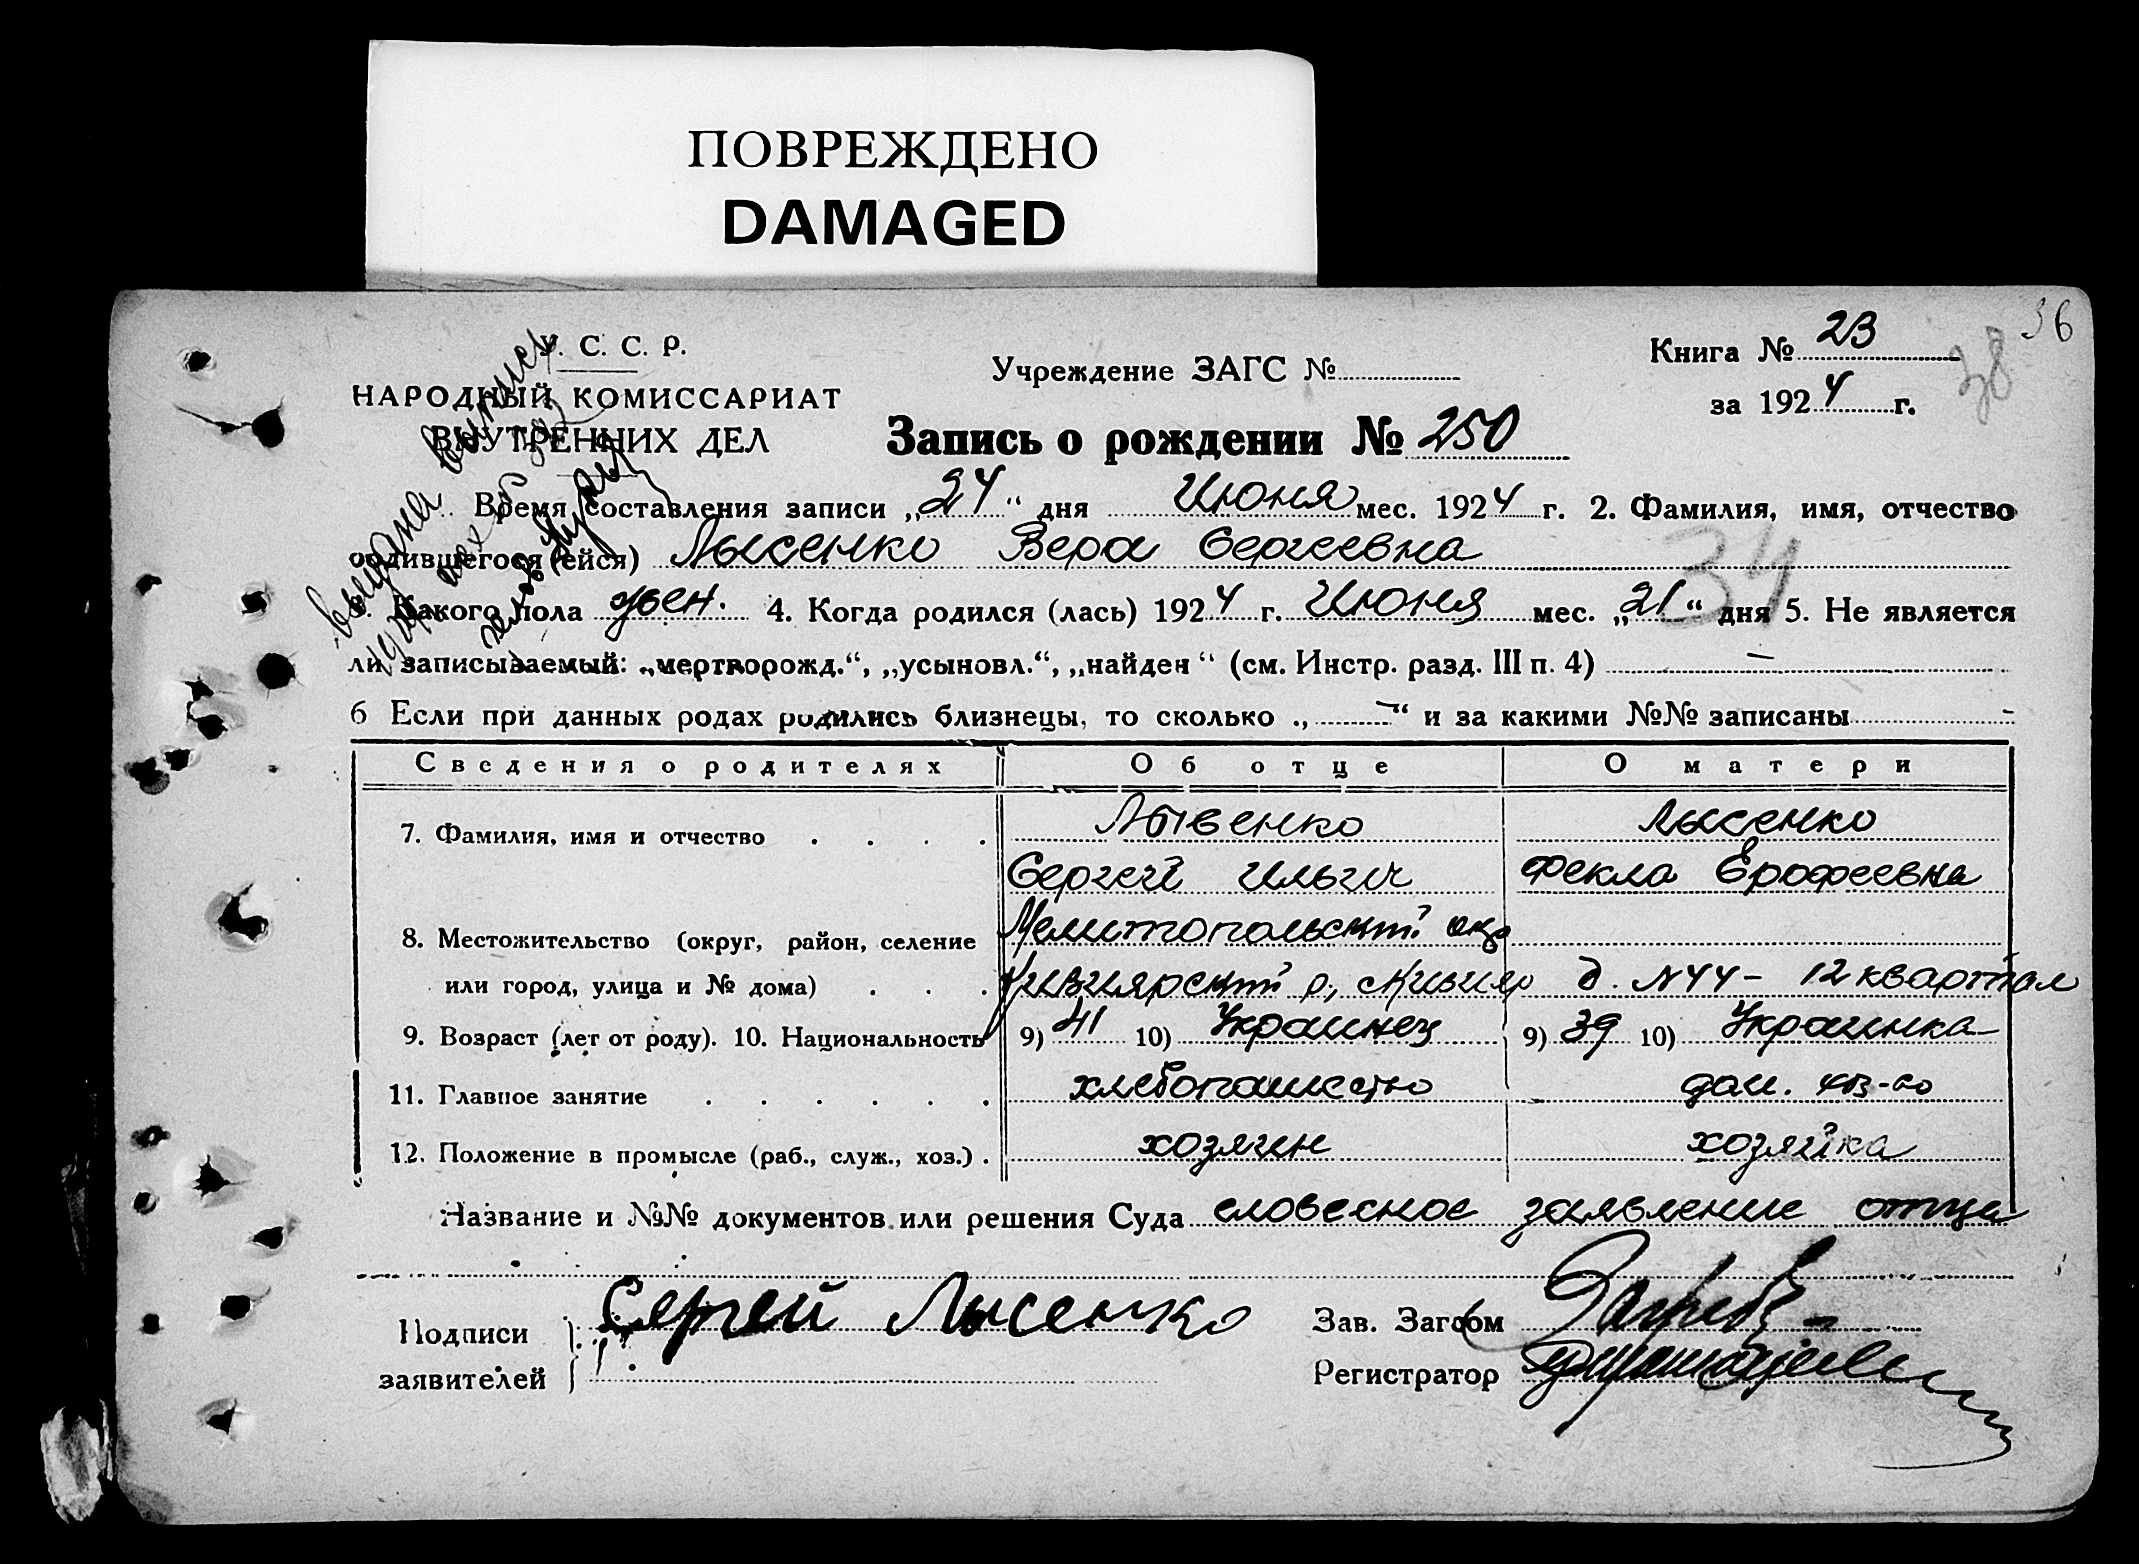 ПОВРЕЖДЕНО
DAMAGED
36
38
У. С. С. Р.
НАРОДНЫЙ КОМИССАРИАТ
ВНУТРЕННИХ ДЕЛ
Учреждение ЗАГС №
Книга № 23
за 1924 г.
Запись о рождении № 250
выдана выпись
Время составления записи „24“ дня Июня мес. 1924 г. 2. Фамилия, имя, отчество
одившегося (ейся) Лысенко Вера Сергеевна
34
Какого пола жен. 4. Когда родился (лась) 1924 г. Июня мес. „21“ дня 5. Не является
ли записываемый: „мертворожд.“, „усыновл.“, „найден“ (см. Инстр. разд. III п. 4) —
6 Если при данных родах родились близнецы, то сколько „—“ и за какими №№ записаны -
Сведения о родителях Об отце О матери
7. Фамилия, имя и отчество Лысенко Лысенко
Сергей Ильич Фекла Ерофеевна
8. Местожительство (округ, район, селение Мелитопольский окр
или город, улица и № дома) р, д. №44 - 12 квартал
9. Возраст (лет от роду). 10. Национальность 9) 41 10) Украинец 9) 39 10) Украинка
11. Главное занятие хлебопашество дом. хоз-во
12. Положение в промысле (раб., служ., хоз.) хозяин хозяйка
Название и №№ документов или решения Суда словесное заявление отца
Подписи Сергей Лысенко Зав. Загсом
заявителей Регистратор